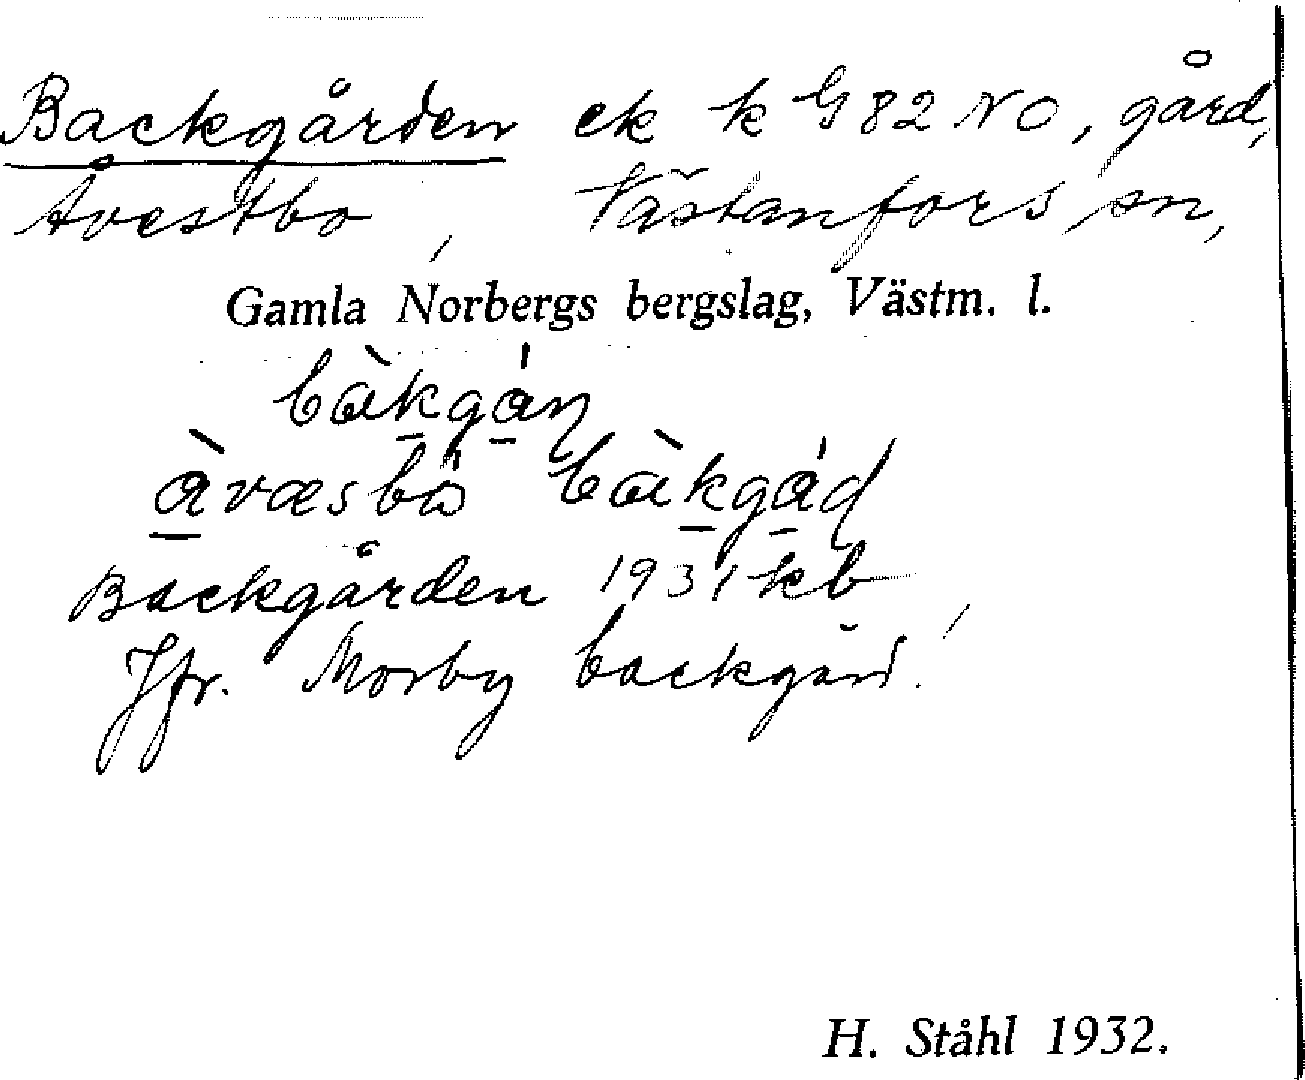 Backgården ek k G 82 NO, gård,
Åvestbo, Västanfors sn,
Gamla Norbergs bergslag, Västm. l.
bàkgán
àvæsbô bàkgád
Backgården 1931 kb
Jfr. Morby backgård!
H. Ståhl 1932.